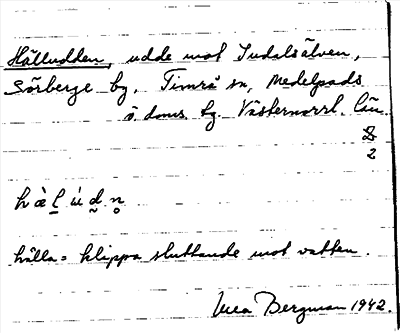 Hälludden, udde mot Indalsälven,
Sörberge by, Timrå sn, Medelpads
ö. doms. by. Västernorrl. län
2
2
h ὰ l ú d n
hälla = klippa sluttande mot vatten.
Bergman 1942.